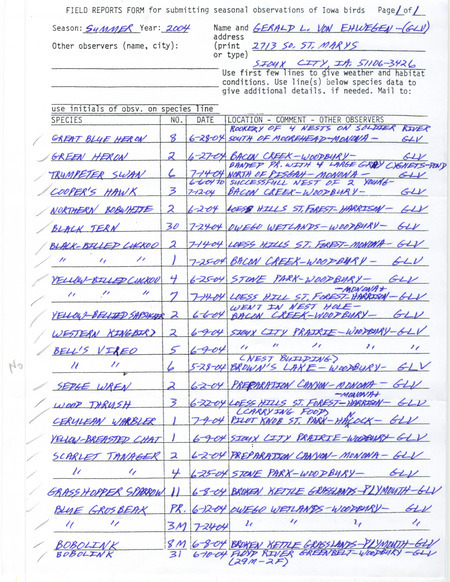 FIELD REPORTS FORM for submitting seasonal observations of Iowa birds Page 1 of 1
Season: SUMMER Year: 2004 Name and GERALD L. VON EHWEGEN-(GLV)
address
Other observers (name, city): (print 2713 SO. ST. MARYS
or type)
SIOUX CITY, IA. 51106-3426
Use first few lines to give weather and habitat
conditions. Use line(s) below species data to
give additional details, if needed. Mail to:
use initials of obsv. on species line
SPECIES NO. DATE LOCATION - COMMENT - OTHER OBSERVERS
ROOKERY OF 4 NESTS ON SOLDIER RIVER
GREAT BLUE HERON 8 6-28-04 SOUTH OF MOOREHEAD-MONONA- GLV
GREEN HERON 2 6-27-04 BACON CREEK-WOODBURY- GLV
BANDED PR. WITH 4 LARGE GRAY CYGNETS-POND
TRUMPETER SWAN 6 7-14-04 NORTH OF PISGAH-MONONA- GLV
6-6-04 TO SUCCESSFULL NEST OF 2 YOUNG-
COOPER'S HAWK 3 7-12-04 BACON CREEK-WOODBURY- GLV
NORTHERN BOBWHITE 2 6-2-04 LOESS HILLS ST. FOREST-HARRISON- GLV
BLACK TERN 30 7-24-04 OWEGO WETLANDS-WOODBURY- GLV
BLACK-BILLED CUCKOO 2 7-14-04 LOESS HILLS ST. FOREST-MONONA- GLV
" " " 1 7-25-04 BACON CREEK-WOODBURY- GLV
YELLOW-BILLED CUCKOO 4 6-25-04 STONE PARK-WOODBURY- GLV
-MONONA-
" " " 7 7-14-04 LOESS HILL ST. FOREST-HARRISON-GLV
WENT IN NEST HOLE-
YELLOW-BELLIED SAPSUCKER 2 6-6-04 BACON CREEK-WOODBURY- GLV
WESTERN KINGBIRD 2 6-9-04 SIOUX CITY PRAIRIE-WOODBURY-GLV
BELL'S VIREO 5 6-9-04 " " " " "
(NEST BUILDING)
No " " 6 5-28-04 BROWN'S LAKE-WOODBURY- GLV
SEDGE WREN 2 6-2-04 PREPARATION CANYON-MONONA- GLV
-MONONA-
WOOD THRUSH 3 6-22-04 LOESS HILLS ST. FOREST-HARRISON-GLV
(CARRYING FOOD)
CERULEAN WARBLER 1 7-9-04 PILOT KNOB ST. PARK-HANCOCK- GLV
YELLOW-BREASTED CHAT 1 6-9-04 SIOUX CITY PRAIRIE-WOODBURY-GLV
SCARLET TANAGER 2 6-2-04 PREPARATION CANYON-MONONA- GLV
" " 4 6-25-04 STONE PARK-WOODBURY- GLV
GRASSHOPPER SPARROW 11 6-8-04 BROKEN KETTLE GRASSLANDS-PLYMOUTH-GLV
BLUE GROSBEAK PR. 6-12-04 OWEGO WETLANDS-WOODBURY- GLV
" " 3M 7-24-04 " " " "
BOBOLINK 8M 6-8-04 BROKEN KETTLE GRASSLANDS-PLYMOUTH-GLV
BOBOLINK 31 6-10-04 FLOYD RIVER GREENBELT-WOODBURY-GLV
(29M-2F)